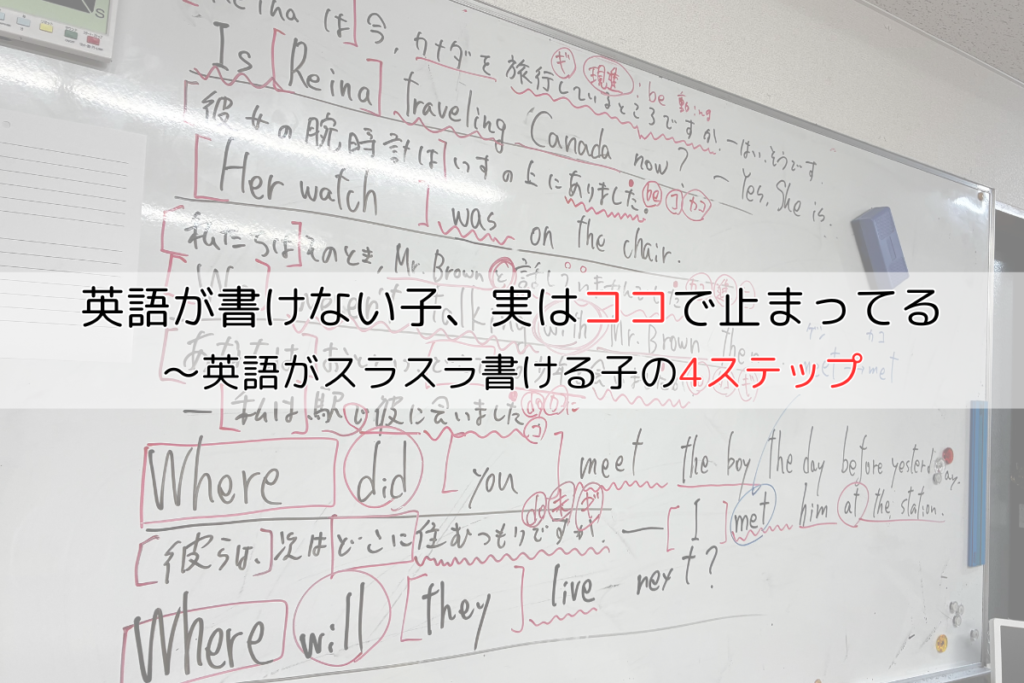 Reina は]今,カナダを旅行しているところですか.—はい、そうです.
ギ 現進 :be 動ing
Is [Reina] traveling Canada now? — Yes, She is.
[彼女の腕時計は]いすの上にありました。be コ カコ
[Her watch] was on the chair.
[私たちは]そのとき,Mr. Brown と話して
talking with Mr. Brown
英語が書けない子、実はココで止まってる
〜英語がスラスラ書ける子の4ステップ
met
— [私は]駅で彼に会いました
Where did [you] meet the boy the day before yesterday.
— [I] met him at the station.
[彼らは、]次はどこに住むつもりですか.
Where will [they] live next?